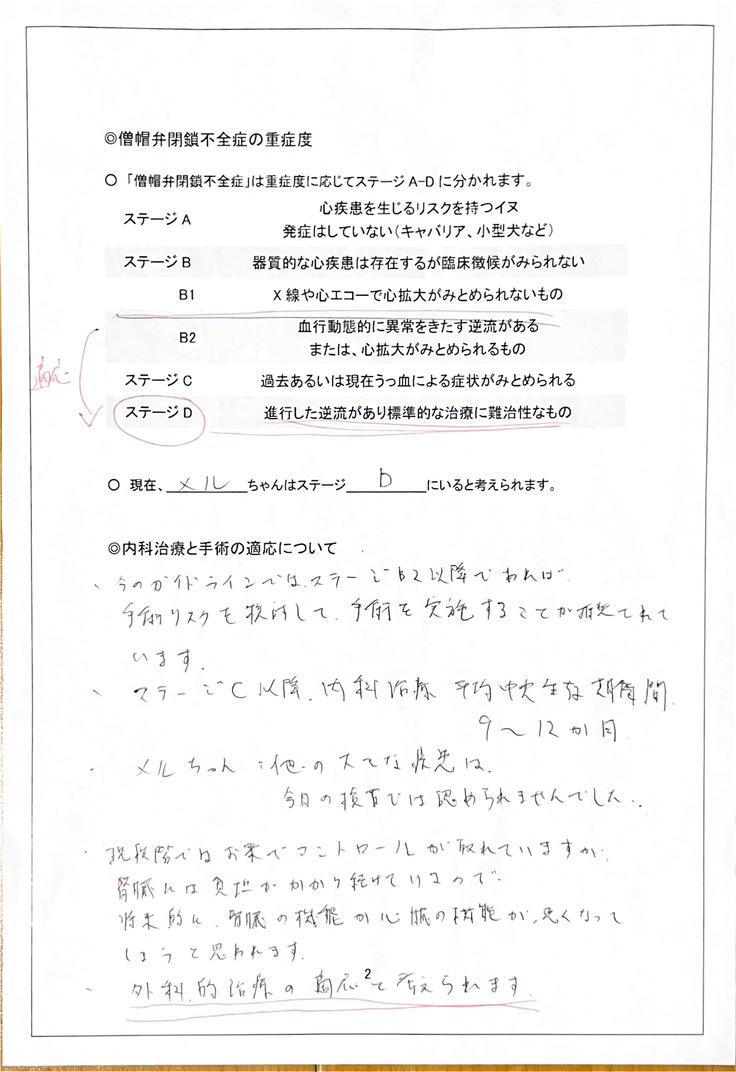 ◎僧帽弁閉鎖不全症の重症度
○ 「僧帽弁閉鎖不全症」は重症度に応じてステージ A-D に分かれます。
ステージ A 心疾患を生じるリスクを持つイヌ
発症はしていない(キャバリア、小型犬など)
ステージ B 器質的な心疾患は存在するが臨床徴候がみられない
B1 X 線や心エコーで心拡大がみとめられないもの
B2 血行動態的に異常をきたす逆流がある
または、心拡大がみとめられるもの
適応
ステージ C 過去あるいは現在うっ血による症状がみとめられる
ステージ D 進行した逆流があり標準的な治療に難治性なもの
○ 現在、メルちゃんはステージ D にいると考えられます。
◎内科治療と手術の適応について
、今のガイドラインでは、ステージB2以降であれば、
手術リスクも検討して、手術を実施することが推奨されて
います。
、ステージC以降、内科治療 平均中央生存期間、
9〜12か月
・メルちゃん :他の大きな疾患は、
今日の検査では認められませんでした.
・現段階ではお薬でコントロールが取れていますが、
腎臓には負担がかかり続けているので、
将来的に、腎臓の機能か心臓の機能が、悪くなって
しまうと思われます.
、外科的治療の適応と考えられます.
2